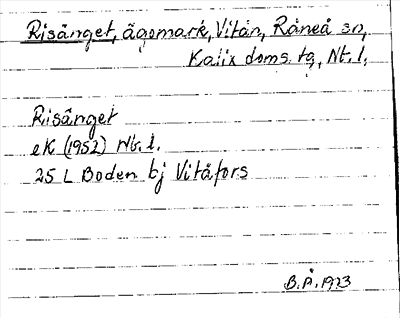 Risänget, ägomark, Vitån, Råneå sn,
Kalix doms. tg, Nt. l.
Risänget
eK (1952) Nt. l.
25 L Boden bj Vitåfors
B.Å. 1973